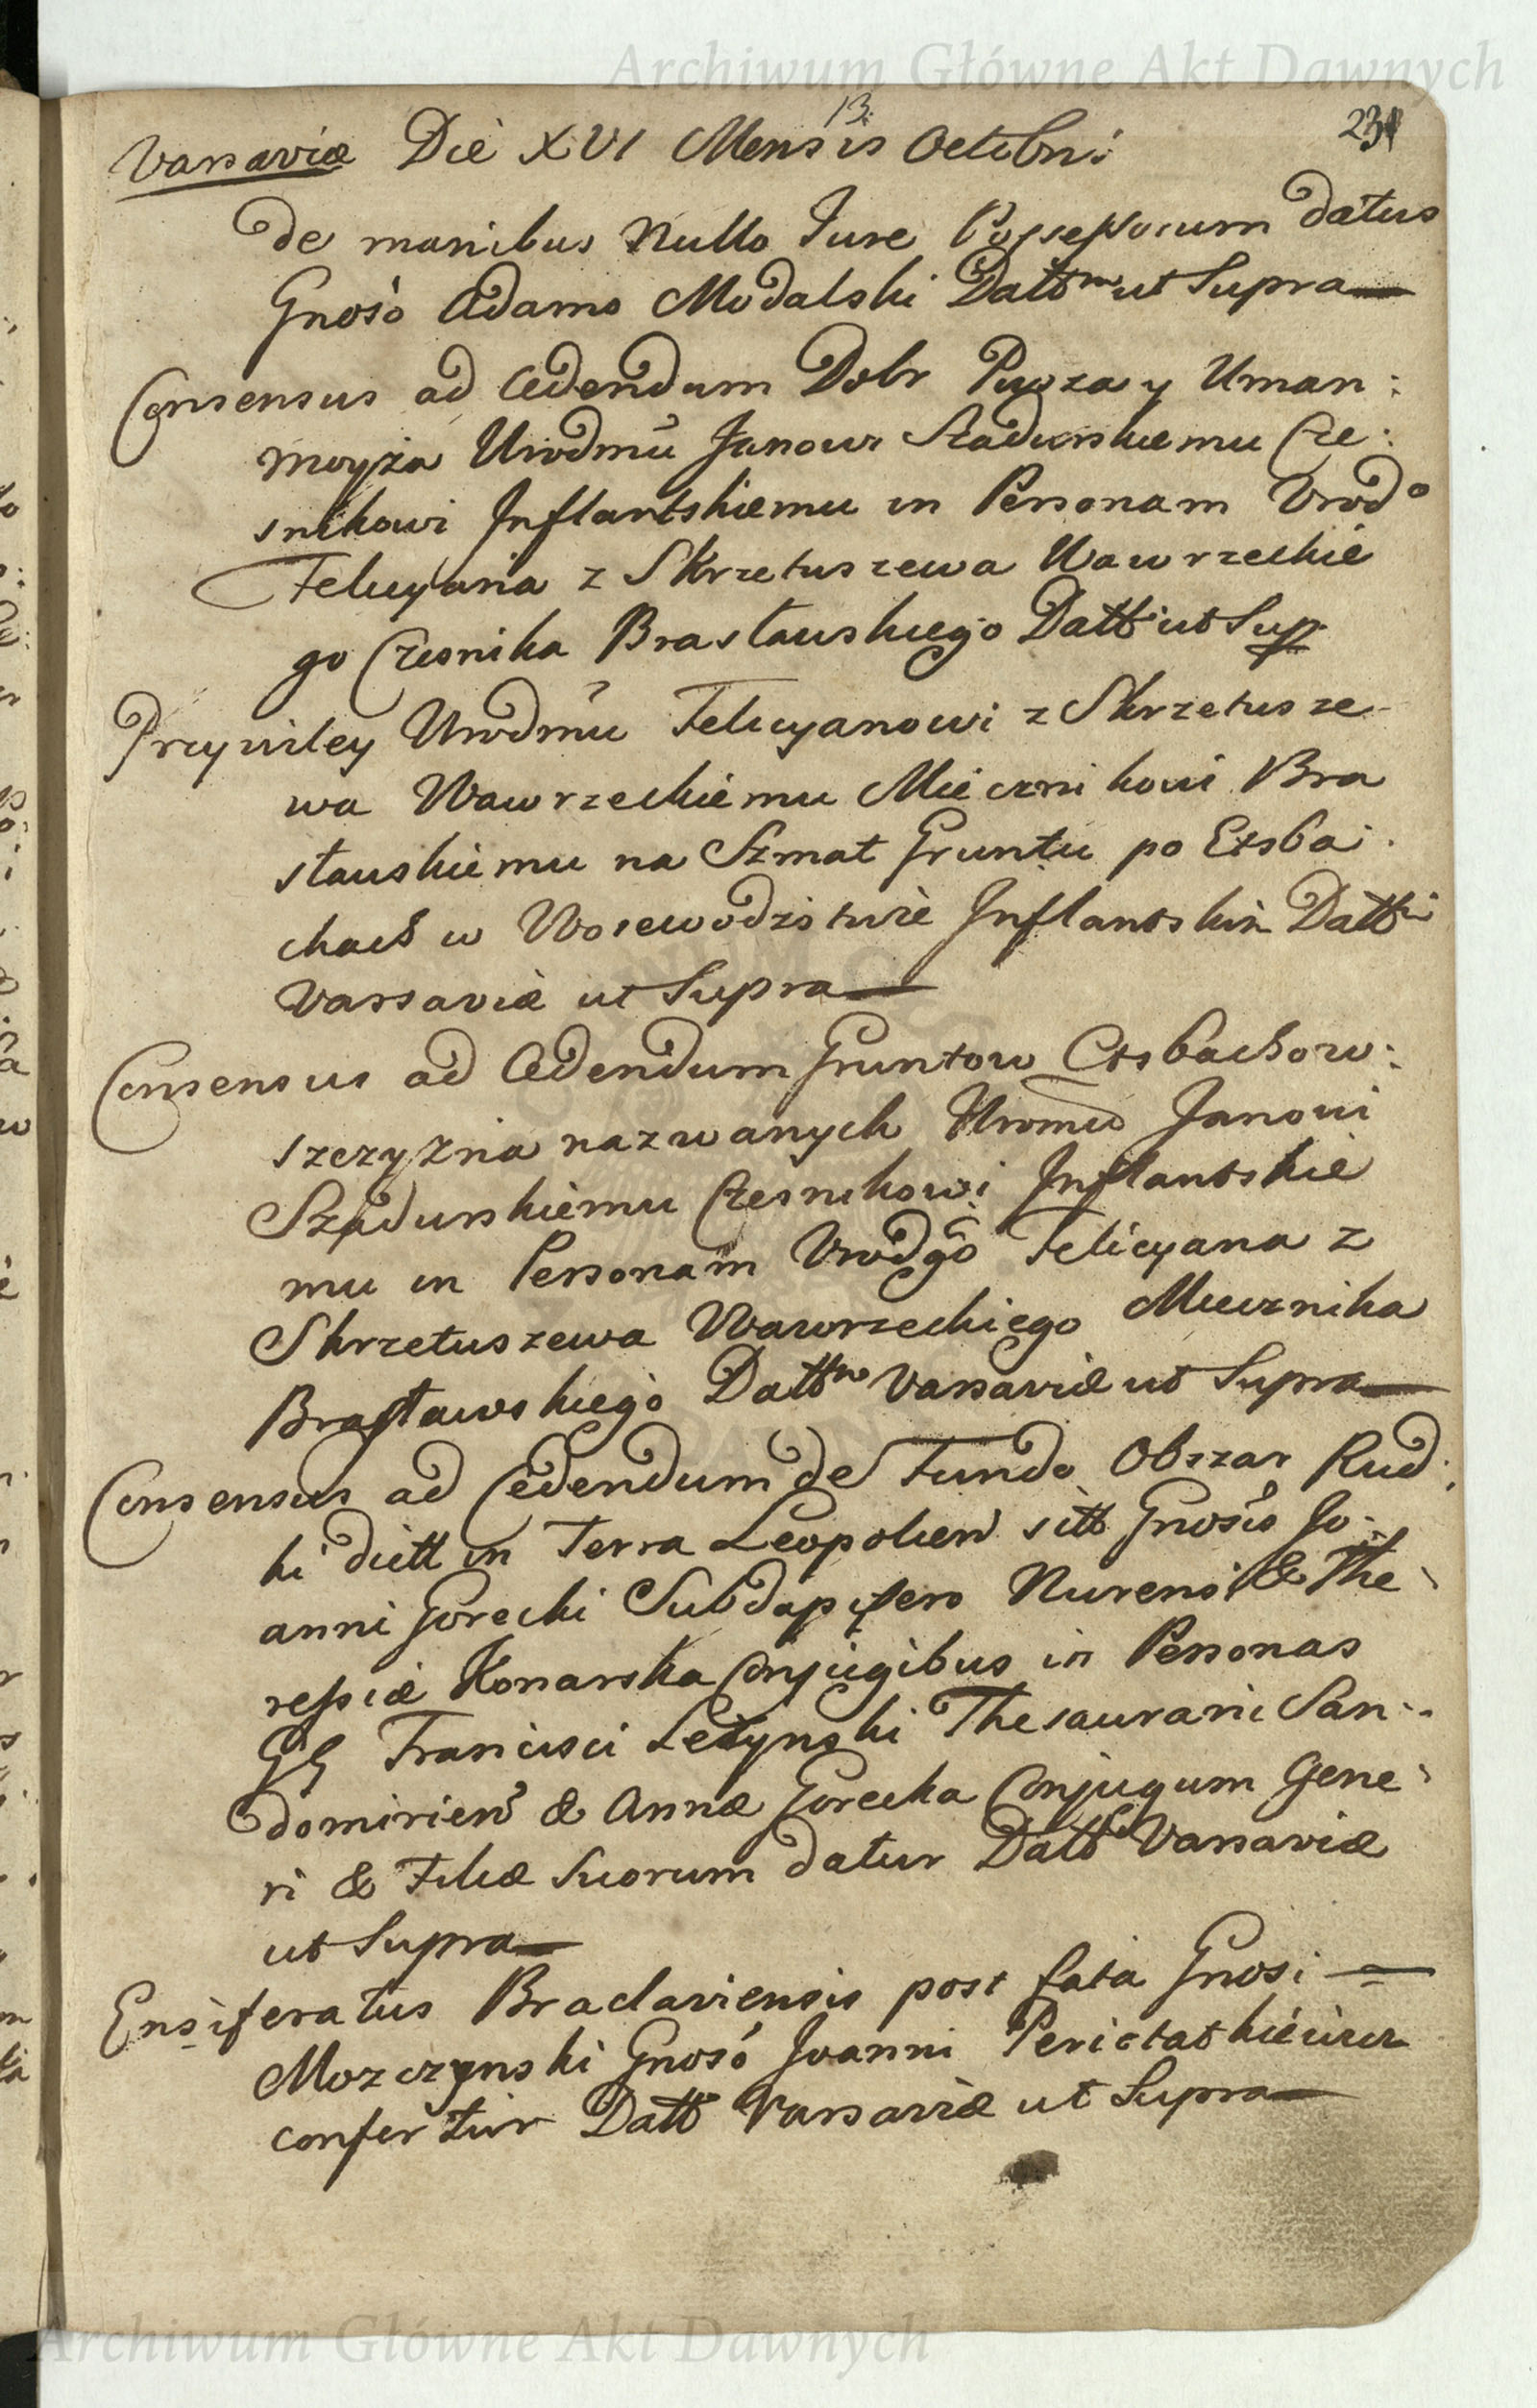 Archiwum Główne Akt Dawnych
13.
231
Varsaviæ Die XVI Mensis Octobris
de manibus Nullo Jure Possessorum datus
Gnoso Adamo Modalski Dattm ut Supra
Consensus ad Cedendum Dobr Puszay Uman:
moyza Urodmu Janowi Szadurskiemu Cze:
snikowi Inflantskiemu in Personam Urodo
Felicyana z Skrzetuszewa Wawrzeckie
go Czesnika Brasławskiego Datt ut Sup
Przywiley Urodmu Felicyanowi z Skrzetusze
wa Wawrzeckiemu Miecznikowi Bra
sławskiemu na Szmat Gruntu po Exsba:
chach w Woiewodzstwie Inflantskim Datt
Varsaviæ ut Supra
Consensus ad Cedendum Gruntow Exsbachow:
szczyzna nazwanych Uromu Janowi
Szadurskiemu Czesnikowi Inflantskie
mu in Personam Urodgo Felicyana z
Skrzetuszewa Wawrzeckiego Miecznika
Brasławskiego Dattm Varsaviæ ut Supra
Consensus ad Cedendum de Fundo Obszar Rud:
ki dictt in Terra Leopolien sitt Gnosis Jo:
anni Gorecki Subdapifero Nurensi & The
resiæ Konarska Conjugibus in Personas
GG Francisci Letynski Thesaurarii San:
domirien & Annæ Gorecka Conjugum Gene
ri & Filiæ Suorum datur Datt Varsaviæ
ut Supra
Ensiferatus Braclaviensis post fata Gnosi
Mozczynski Gnoso Joanni
confertur Datt Varsaviæ ut Supra
Archiwum Główne Akt Dawnych